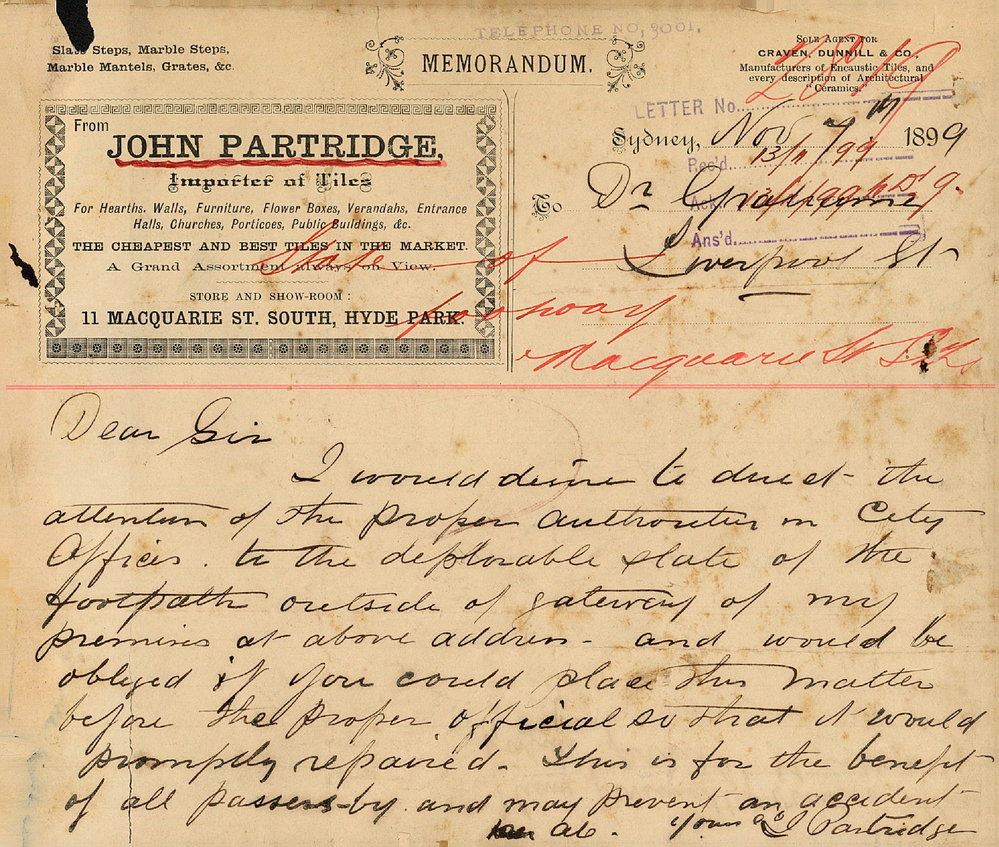 TELEPHONE NO, 3001.
Slate Steps, Marble Steps,
Marble Mantels, Grates, &c.
MEMORANDUM.
SOLE AGENT FOR
CRAVEN, DUNNILL & CO.
Manufacturers of Encaustic Tiles, and
every description of Architectural
Ceramics.
From
JOHN PARTRIDGE,
Importer of Tiles
For Hearths. Walls, Furniture, Flower Boxes, Verandahs, Entrance
Halls, Churches, Porticoes, Public Buildings, &c.
THE CHEAPEST AND BEST TILES IN THE MARKET.
A Grand Assortment always on View.
STORE AND SHOW-ROOM:
11 MACQUARIE ST. SOUTH, HYDE PARK.
LETTER No.
Sydney, Nov 1899
Rec'd 13/11/99
Ack.
To Dr
Ans'd
Liverpool St
State of
footway
Macquarie St
Dear Sir
I would desire to direct the
attention of the proper authorities in City
Offices. to the deplorable state of the
footpath outside of gateway of my
premises at above address - and would be
obliged if you could place this matter
before the proper official so that it would
promptly repaired. This is for the benefit
of all passers-by and may prevent an accident
Yours &c J Partridge